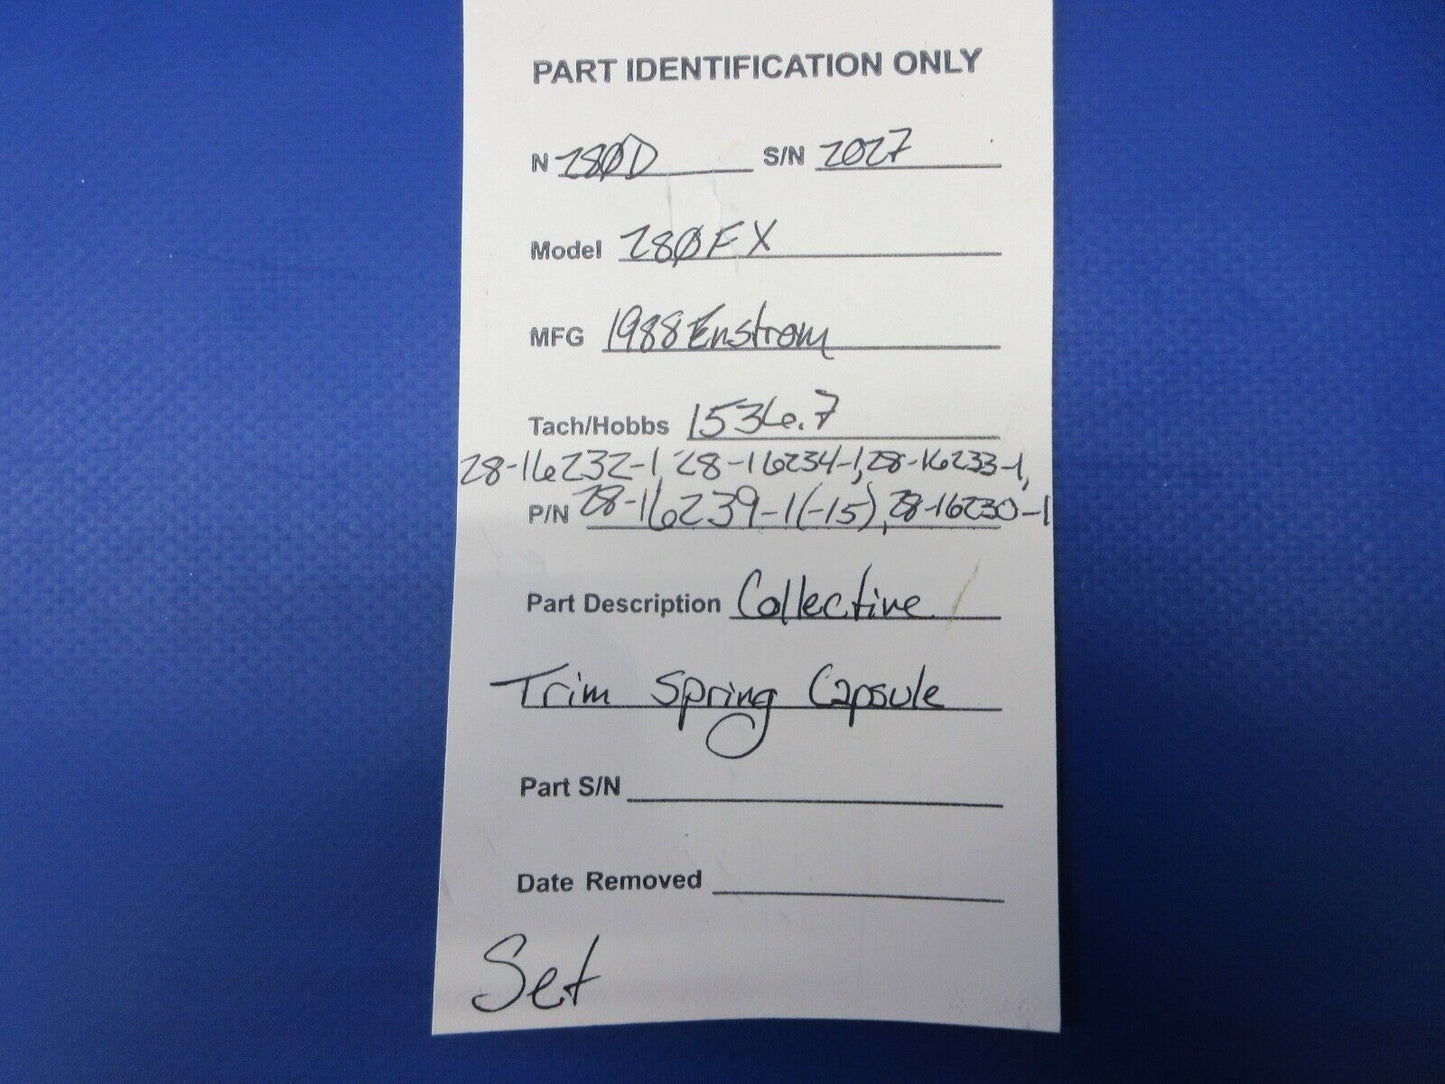 PART IDENTIFICATION ONLY
N 280D S/N 2027
Model 280FX
MFG 1988 Enstrom
Tach/Hobbs 1536.7
28-16232-1, 28-16234-1, 28-16233-1,
P/N 28-16239-1(-15), 28-16230-1
Part Description Collective
Trim Spring Capsule
Part S/N
Date Removed
Set